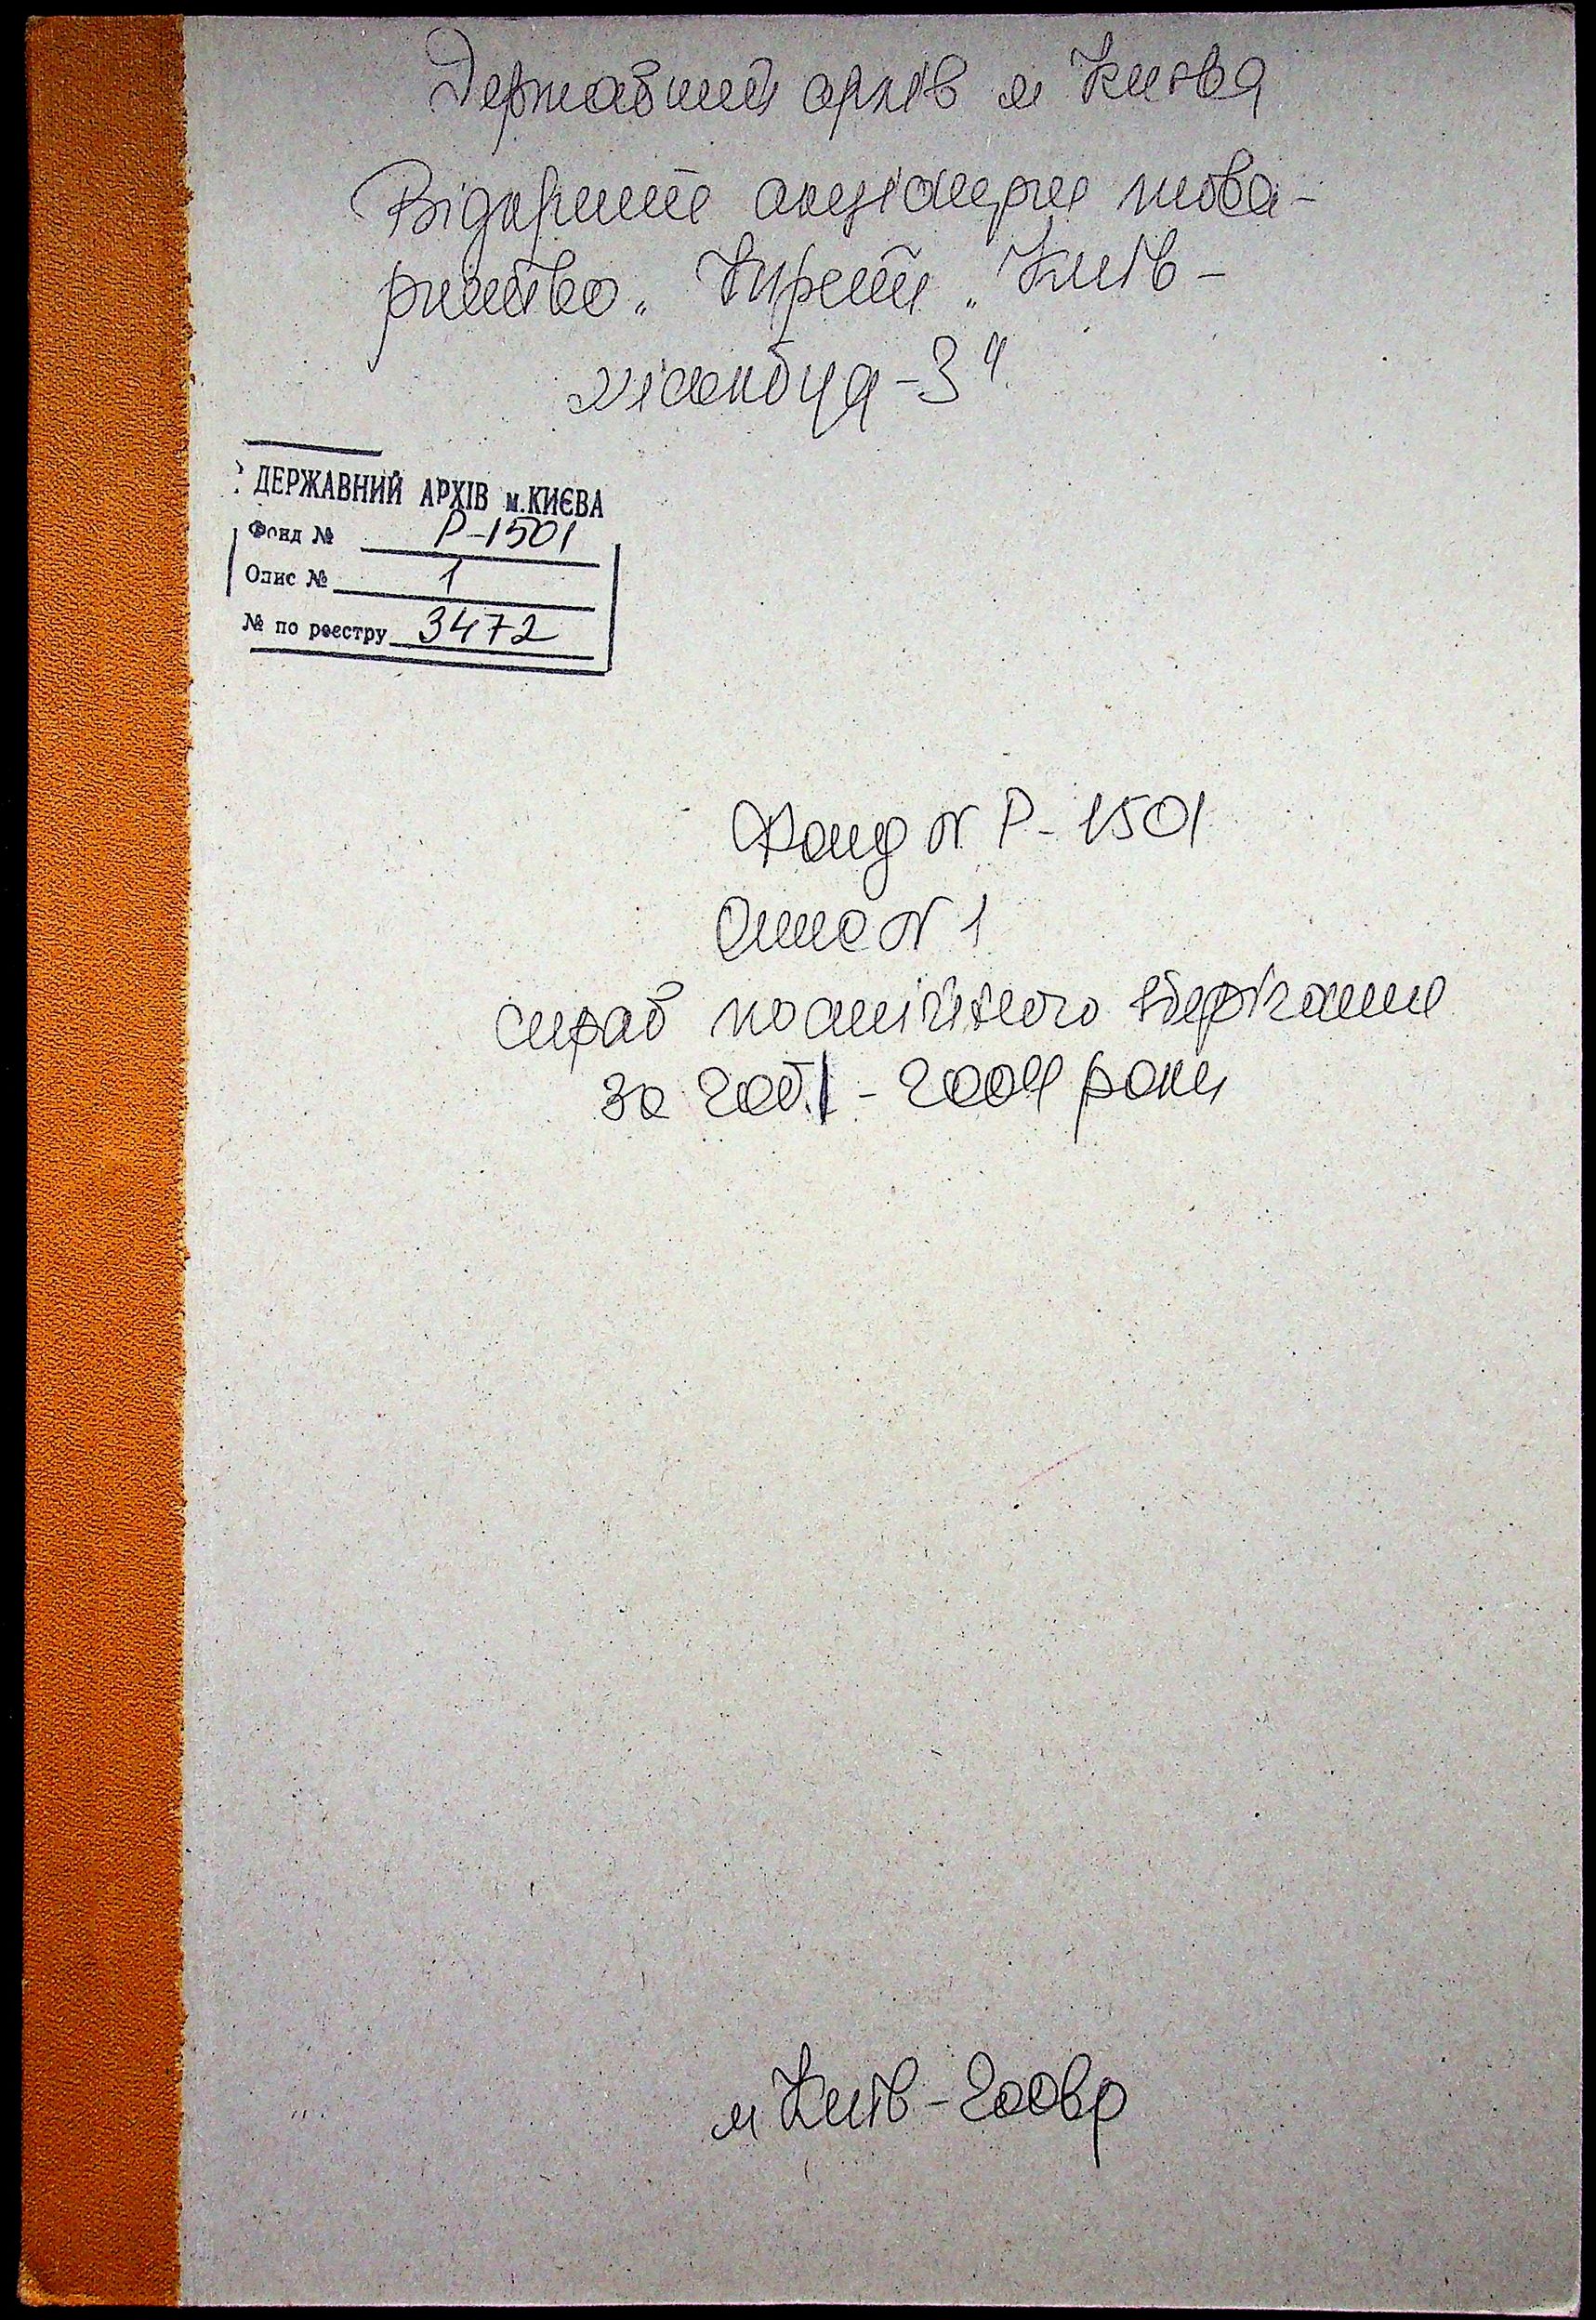 Державний архів м Києва
Відкрите акціонерне това-
риство „Трест „Київ-
міськбуд-3"
ДЕРЖАВНИЙ АРХІВ м.КИЄВА
Фонд № Р-1501
Опис № 1
№ по реєстру 3472
Фонд N Р-1501
Опис N 1
справ постійного зберігання
за 2001-2004 роки
м Київ-2006р